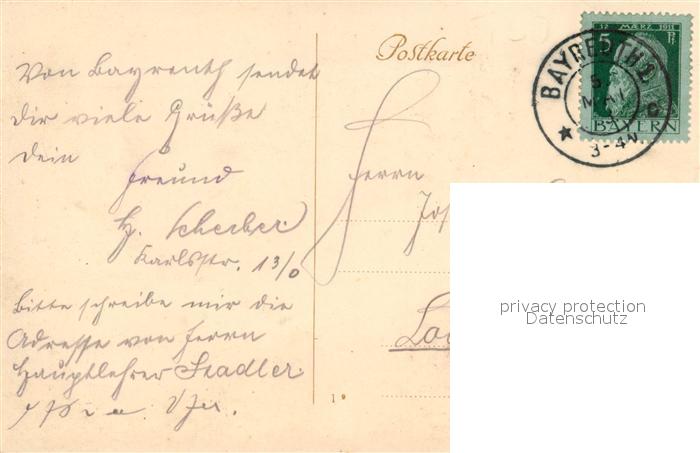 Postkarte
12 MÆRZ 1911
5 Pf
BAYERN
BAYREUTH 2
3-4N
Von Bayreuth sendet
dir viele Grüße
dein
Freund
H. Scheiber
Karlsstr. 13/0
Bitte schreibe mir die
Adresse von Herrn
Hauptlehrer Stadler
Herrn
Jos
privacy protection
Datenschutz